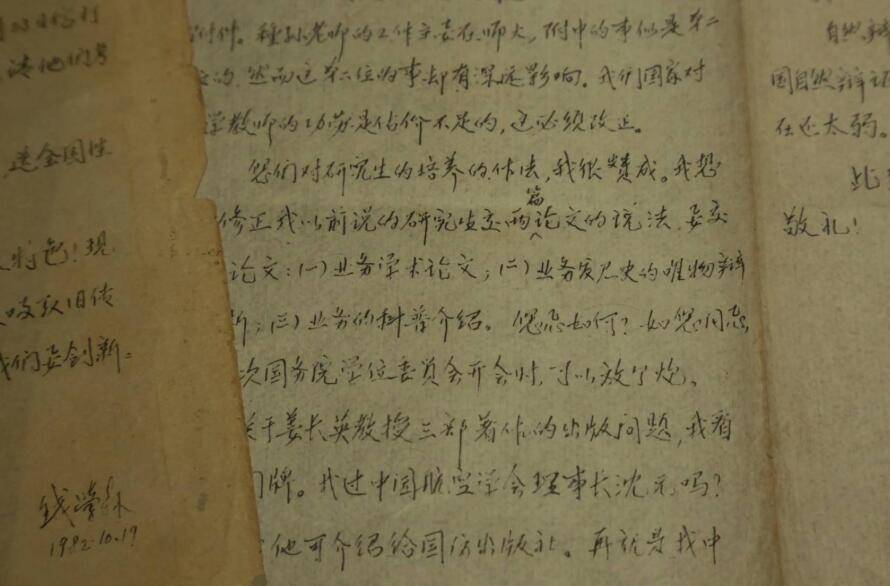 进全国性
特色！现
吸取旧传
我们要创新。
钱学森
1982.10.19
附件。种孙老师的工作主要在师大，附中的事似是第二
的，然而这第二位的事却有深远影响。我们国家对
学教师的功劳是估价不足的，这必须改正。
您们对研究生的培养的作法，我很赞成。我想
修正我以前说的研究生交两篇论文的说法，要交
论文：(一)业务学术论文；(二)业务发展史的唯物辩
；(三)业务的科普介绍。您意如何？如您同意，
次国务院学位委员会开会时，可以放个炮。
关于姜长英教授三部著作的出版问题，我看
门牌。找过中国航空学会理事长沈元吗？
他可介绍给国防出版社。再就是找中
自然辩
国自然辩证
在还太弱。
此
敬礼！